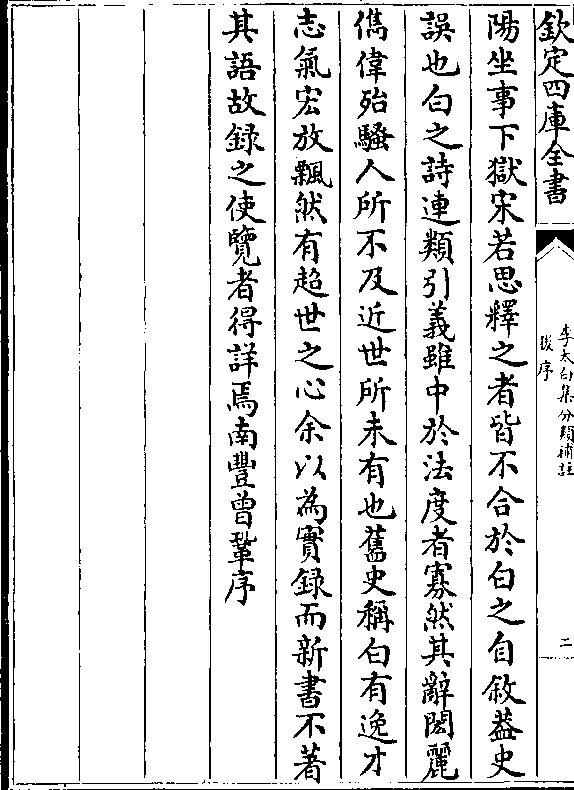 欽定四庫全書
李太白集分類補註
後序
二
陽坐事下獄宋若思釋之者皆不合於白之自敘葢史
誤也白之詩連類引義雖中於法度者寡然其辭閎麗
儁偉殆騷人所不及近世所未有也舊史稱白有逸才
志氣宏放飄然有超世之心余以為實録而新書不著
其語故録之使覽者得詳焉南豐曾鞏序